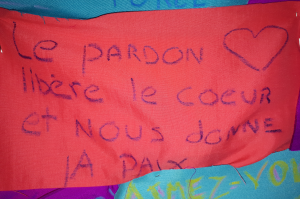 FORCE
Le PARDON
libère le coeur
et NOUS donne
lA PAIX
AIMEZ-VOU